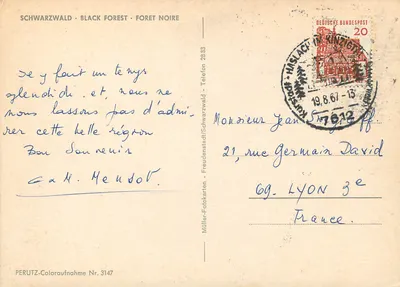 SCHWARZWALD · BLACK FOREST · FORET NOIRE
Il y fait un temps
splendide. et, nous ne
nous lassons pas d'admi-
rer cette belle région
Bon Souvenir
M. Mendot.
PERUTZ-Coloraufnahme Nr. 3147
Müller-Fotokarten - Freudenstadt/Schwarzwald - Telefon 2883
DEUTSCHE BUNDESPOST
20
HASLACH IM KINZIGTAL
19.8.67-13
7612
Monsieur Jean
21, rue Germain David
69. LYON 3e
France.